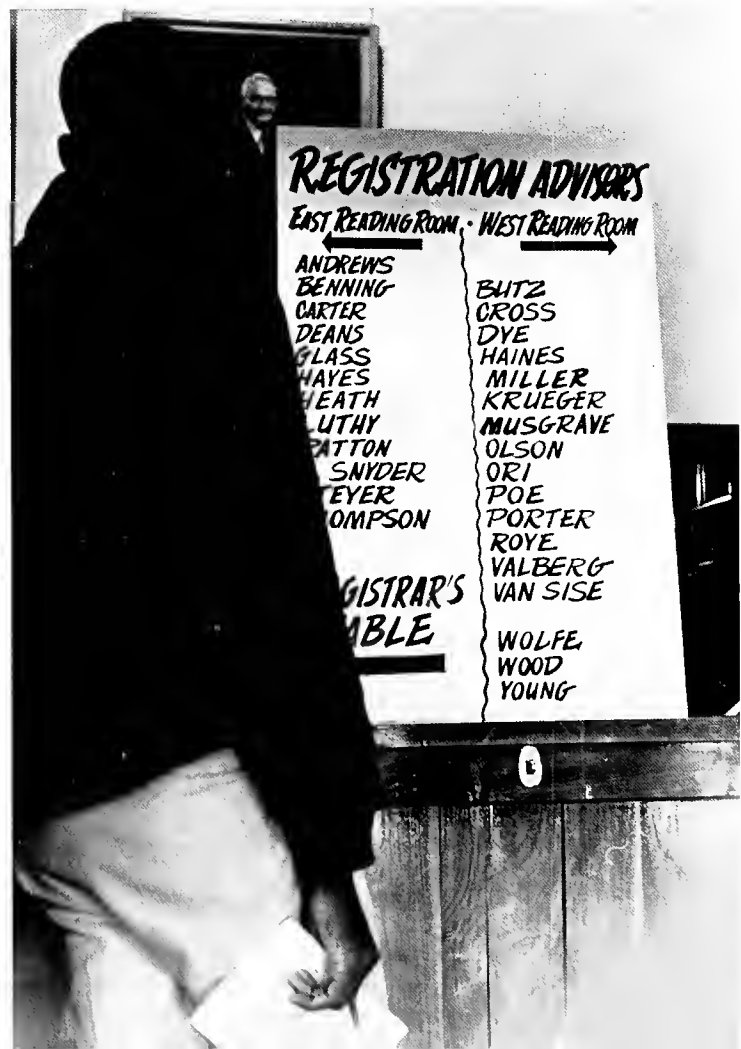 REGISTRATION ADVISORS
EAST READING ROOM · WEST READING ROOM
ANDREWS
BENNING
CARTER
DEANS
GLASS
HAYES
HEATH
LUTHY
PATTON
SNYDER
TEYER
OMPSON
GISTRAR'S
ABLE
BUTZ
CROSS
DYE
HAINES
MILLER
KRUEGER
MUSGRAVE
OLSON
ORI
POE
PORTER
ROYE
VALBERG
VAN SISE
WOLFE
WOOD
YOUNG